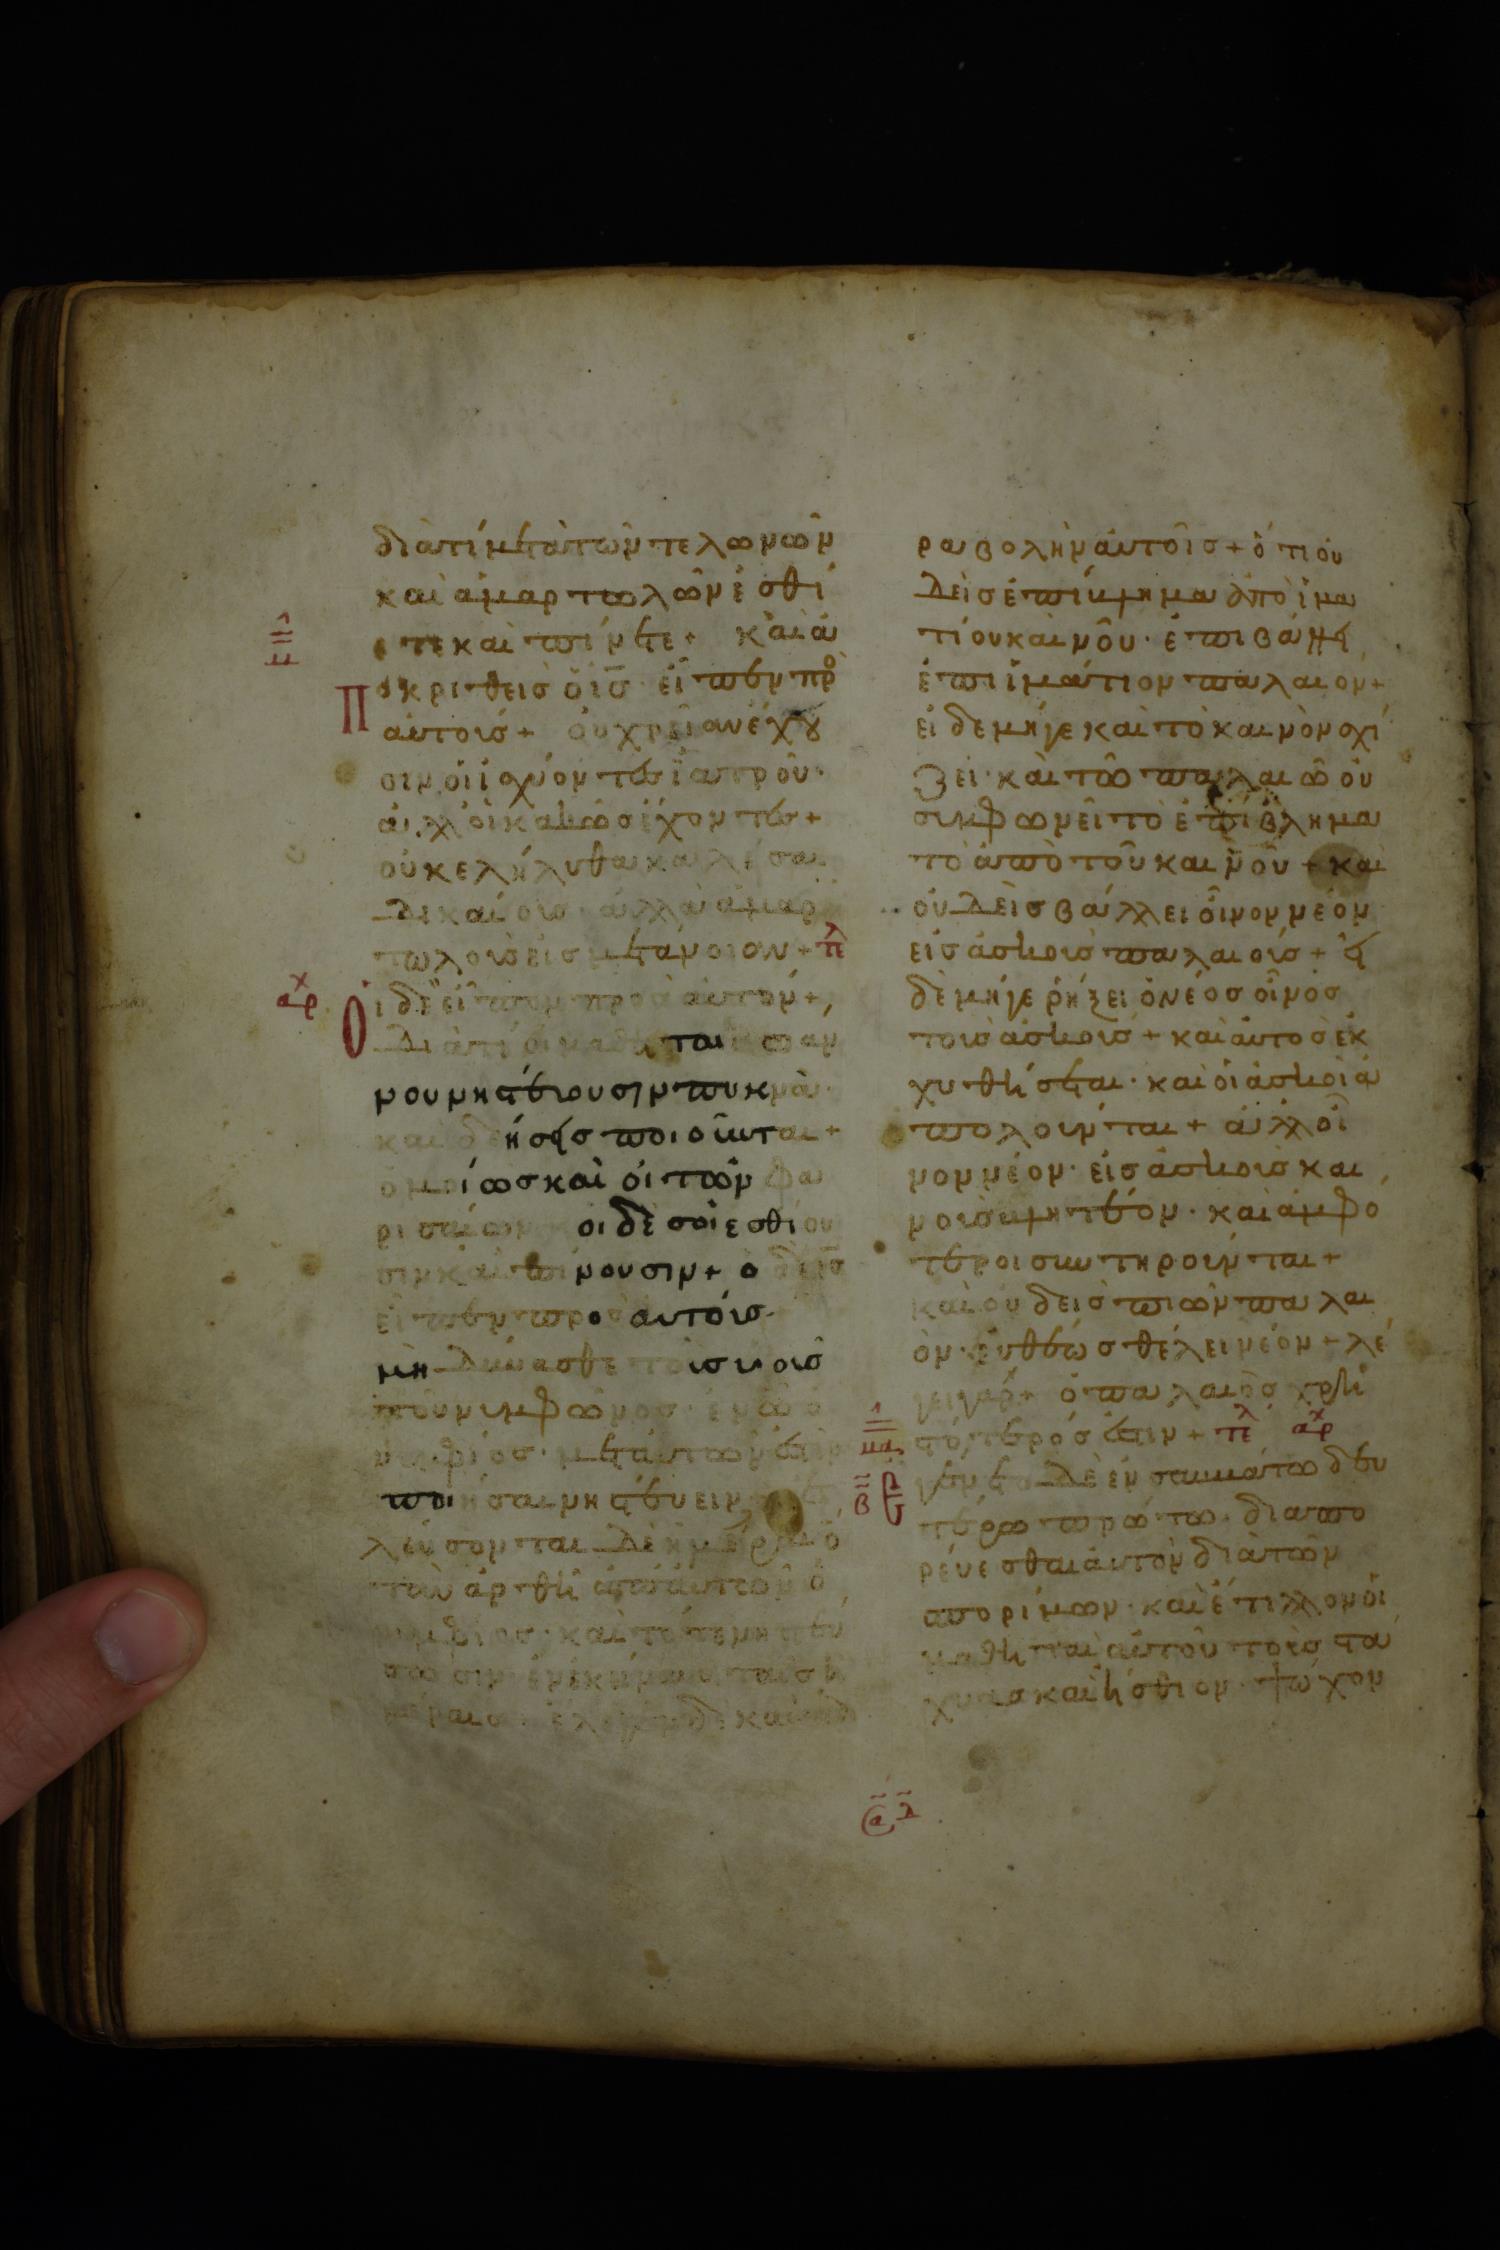 διὰτί μετὰ τῶν τελωνῶν
καὶ ἁμαρτωλῶν ἐσθί
ετε καὶ πίνετε + καὶ ἀ
ποκριθεὶς ὁ ις̅ εἶπεν πρὸ
αὐτούσ + οὐ χρείαν ἔχου
σιν οἱ ἰσχύοντεσ ἰατροῦ·
ἀλλ οἱ κακῶσ ἔχοντεσ +
οὐκ ἐλήλυθα καλέσαι
δικαίουσ· ἀλλὰ ἁμαρ
τωλοὺσ εἰσ μετάνοιαν + τελ
αρχ Οἱ δὲ εἶπον πρὸσ αὐτόν +
διὰτί οἱ μαθηταὶ ἰωάν
νου νηστεύουσιν πυκνὰ·
καὶ δεήσεισ ποιοῦνται +
ὁμοίωσ καὶ οἱ τῶν φα
ρισαίων οἱ δὲ σοὶ ἐσθίου
σιν καὶ πίνουσιν + ὁ δὲ ις̅
εἶπεν πρὸσ αὐτούσ·
μὴ δύνασθε τοὺσ υἱοὺσ
τοῦ νυμφῶνοσ· ἐν ᾧ ὁ
νυμφίοσ· μετ αὐτῶν ἐστὶν
ποιῆσαι νηστεύειν
λεύσονται δὲ ἡμέραι ὅ
ταν ἀρθῆ ἀπ αὐτῶν ὁ
νυμφίοσ· καὶ τότε νηστεύ
σωσιν ἐν ἐκείναισ ταῖσ ἡ
μέραισ· ἔλεγεν δὲ καὶ
ραβολὴν αὐτοῖσ + ὅτι οὐ
δεὶσ ἐπίβλημα ἀπὸ ἱμα
τίου καινοῦ· ἐπιβάλλει
ἐπὶ ἱμάτιον παλαιόν +
εἰ δὲ μήγε καὶ τὸ καινὸν σχί
ζει· καὶ τῶ παλαιῶ οὐ
συμφωνεῖ τὸ ἐπίβλημα
τὸ ἀπὸ τοῦ καινοῦ + καὶ
οὐδεὶσ βάλλει οἶνον νέον
εἰσ ἀσκοὺσ παλαιούσ + εἰ
δὲ μήγε ῥήξει ὁ νέοσ οἶνοσ
τοὺσ ἀσκούσ + καὶ αὐτὸσ ἐκ
χυθήσεται· καὶ οἱ ἀσκοὶ ἀ
πολοῦνται + ἀλλ οἶ
νον νέον· εἰσ ἀσκοὺσ και
νοὺσ βλητέον· καὶ ἀμφό
τεροι συντηροῦνται +
καὶ οὐδεὶσ πιὼν παλαι
ὸν· εὐθέωσ θέλει νέον + λέ
γει γάρ + ὁ παλαιὸσ χρη
στότεροσ ἐστιν + τελ αρχ
γένετο δὲ ἐν σαββάτω δευ
τέρω πρώτω· διαπο
ρεύεσθαι αὐτὸν διὰ τῶν
σπορίμων· καὶ ἔτιλλον οἱ
μαθηταὶ αὐτοῦ τοὺσ στά
χυασ καὶ ἤσθιον· ψώχον